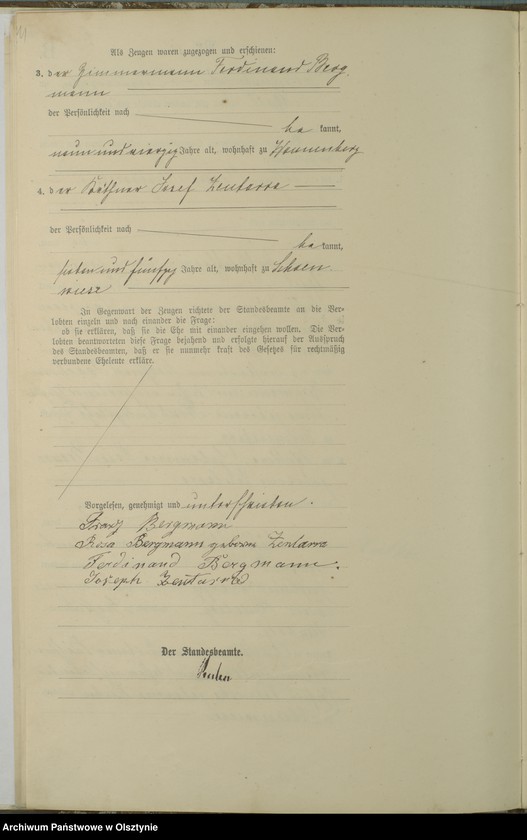 Als Zeugen waren zugezogen und erschienen:
3. der Zimmermann Ferdinand Berg
mann
der Persönlichkeit nach
be kannt,
neun und vierzig Jahre alt, wohnhaft zu
4. der Käthner Josef Zentarra
der Persönlichkeit nach
be kannt,
sieben und fünfzig Jahre alt, wohnhaft zu Schoen
wiese
In Gegenwart der Zeugen richtete der Standesbeamte an die Ver-
lobten einzeln und nach einander die Frage:
ob sie erklären, daß sie die Ehe mit einander eingehen wollen. Die Ver-
lobten beantworteten diese Frage bejahend und erfolgte hierauf der Ausspruch
des Standesbeamten, daß er sie nunmehr kraft des Gesetzes für rechtmäßig
verbundene Eheleute erkläre.
Vorgelesen, genehmigt und unterschrieben.
Franz Bergmann
Rosa Bergmann geborene Zentarra
Ferdinand Bergmann.
Joseph Zentarra
Der Standesbeamte.
Archiwum Państwowe w Olsztynie